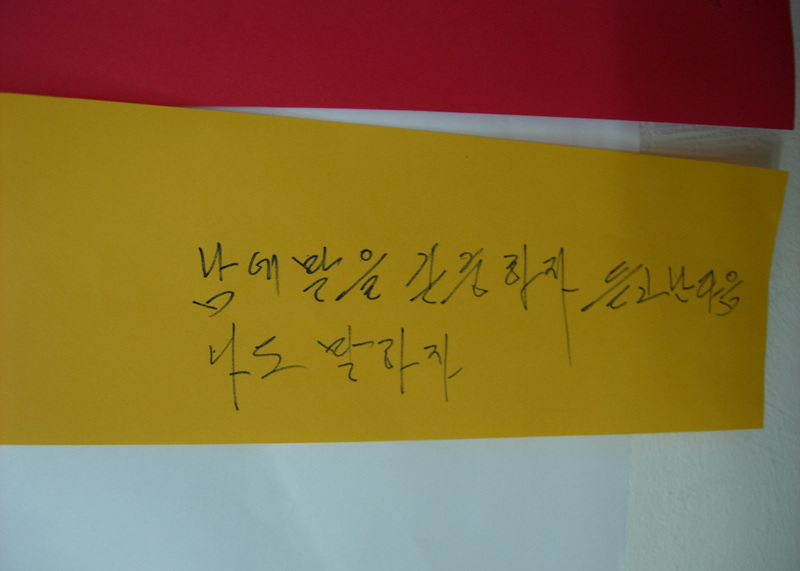 남에 말을 존중하자 듣고난다음
나도 말하자